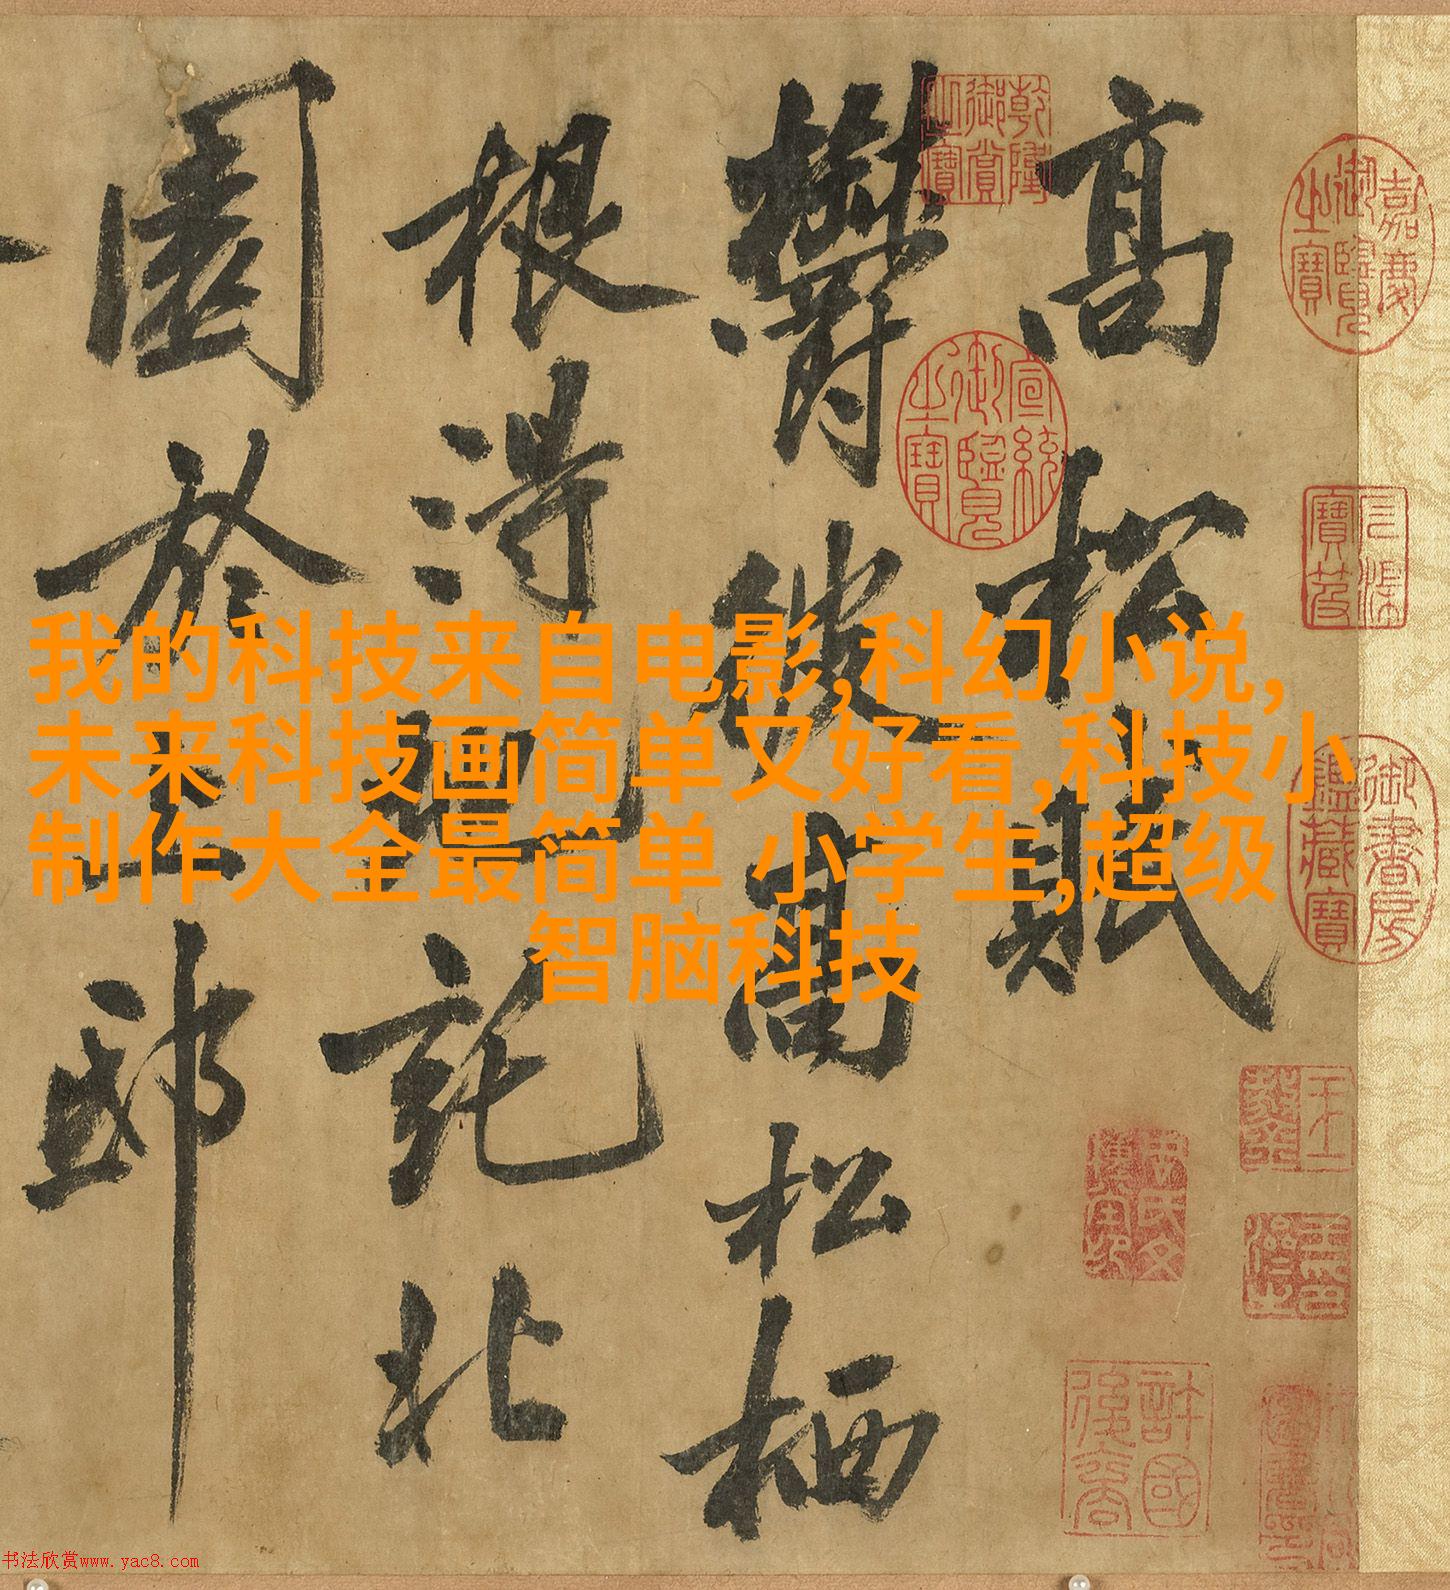 高松賦
鬱彼高松栖
根得地託北
園於上邸
我的科技来自电影,科幻小说,
未来科技画简单又好看,科技小
制作大全最简单 小学生,超级
智脑科技
嘉慶御覽之寶
乾隆御賞之寶
宣統御覽之寶
石渠寶笈
御書房鑑藏寶
許國後裔
书法欣赏www.yac8.com